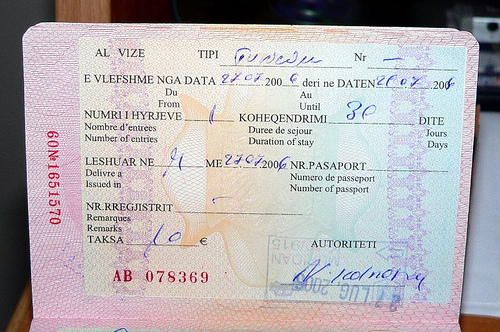 AL VIZE TIPI Nr —
E VLEFSHME NGA DATA 27.07.2006 deri ne DATEN .07.2006
Du Au
From Until
NUMRI I HYRJEVE 1 KOHEQENDRIMI 30 DITE
Nombre d'entrees Duree de sejour Jours
Number of entries Duration of stay Days
LESHUAR NE ME 27.07.2006 NR.PASAPORT
Delivre a Numero de passeport
Issued in Number of passport
NR.RREGJISTRIT –
Remarques
Remarks
TAKSA 10 € AUTORITETI
AB 078369
60№1651570